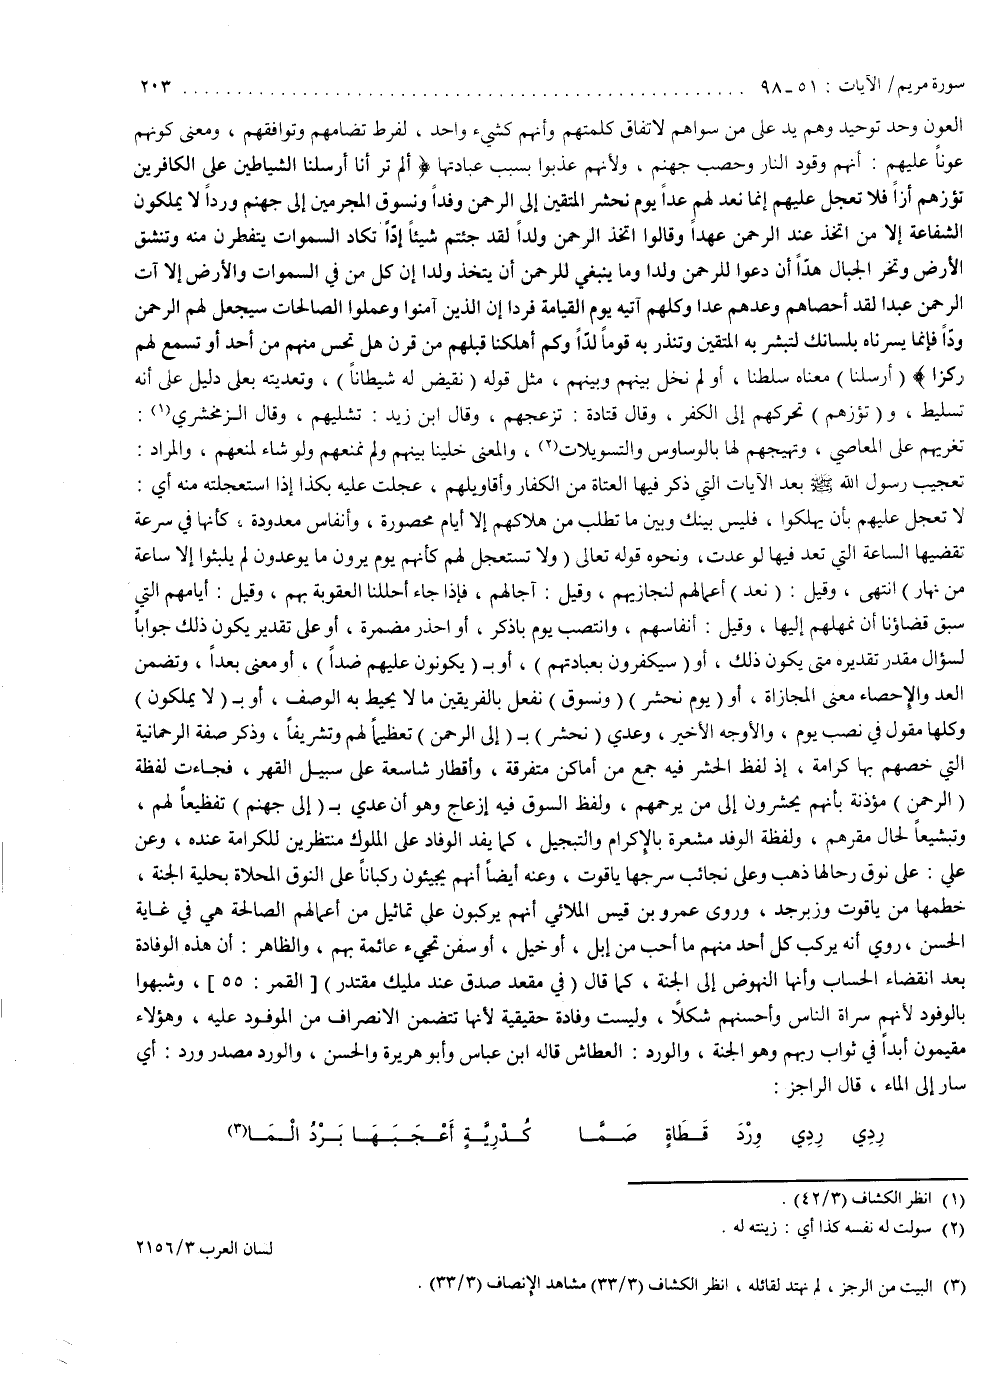 سورة مريم/ الآيات : ٥١ ـ ٩٨ ........................................................ ٢٠٣
العون وحد توحيد وهم يد على من سواهم لاتفاق كلمتهم وأنهم كشيء واحد ، لفرط تضامهم وتوافقهم ، ومعنى كونهم
عوناً عليهم : أنهم وقود النار وحصب جهنم ، ولأنهم عذبوا بسبب عبادتها ﴿ ألم تر أنا أرسلنا الشياطين على الكافرين
تؤزهم أزاً فلا تعجل عليهم إنما نعد لهم عداً يوم نحشر المتقين إلى الرحمن وفداً ونسوق المجرمين إلى جهنم ورداً لا يملكون
الشفاعة إلا من اتخذ عند الرحمن عهداً وقالوا اتخذ الرحمن ولداً لقد جئتم شيئاً إدّاً تكاد السموات يتفطرن منه وتنشق
الأرض وتخر الجبال هدّاً أن دعوا للرحمن ولدا وما ينبغي للرحمن أن يتخذ ولدا إن كل من في السموات والأرض إلا آت
الرحمن عبدا لقد أحصاهم وعدهم عدا وكلهم آتيه يوم القيامة فردا إن الذين آمنوا وعملوا الصالحات سيجعل لهم الرحمن
ودّاً فإنما يسرناه بلسانك لتبشر به المتقين وتنذر به قوماً لدّاً وكم أهلكنا قبلهم من قرن هل تحس منهم من أحد أو تسمع لهم
ركزا ﴾ ( أرسلنا ) معناه سلطنا ، أو لم نخل بينهم وبينهم ، مثل قوله ( نقيض له شيطاناً ) ، وتعديته بعلى دليل على أنه
تسليط ، و ( تؤزهم ) تحركهم إلى الكفر ، وقال قتادة : تزعجهم ، وقال ابن زيد : تشليهم ، وقال الزمخشري(١) :
تغريهم على المعاصي ، وتهيجهم لها بالوساوس والتسويلات(٢) ، والمعنى خلينا بينهم ولم نمنعهم ولو شاء لمنعهم ، والمراد :
تعجيب رسول الله ﷺ بعد الآيات التي ذكر فيها العتاة من الكفار وأقاويلهم ، عجلت عليه بكذا إذا استعجلته منه أي :
لا تعجل عليهم بأن يهلكوا ، فليس بينك وبين ما تطلب من هلاكهم إلا أيام محصورة ، وأنفاس معدودة ، كأنها في سرعة
تقضيها الساعة التي تعد فيها لو عدت، ونحوه قوله تعالى ( ولا تستعجل لهم كأنهم يوم يرون ما يوعدون لم يلبثوا إلا ساعة
من نهار ) انتهى ، وقيل : ( نعد ) أعمالهم لنجازيهم ، وقيل : آجالهم ، فإذا جاء أحللنا العقوبة بهم ، وقيل : أيامهم التي
سبق قضاؤنا أن نمهلهم إليها ، وقيل : أنفاسهم ، وانتصب يوم باذكر ، أو احذر مضمرة ، أو على تقدير يكون ذلك جواباً
لسؤال مقدر تقديره متى يكون ذلك ، أو ( سيكفرون بعبادتهم ) ، أو بـ ( يكونون عليهم ضداً ) ، أو معنى بعداً ، وتضمن
العد والإحصاء معنى المجازاة ، أو ( يوم نحشر ) ( ونسوق ) نفعل بالفريقين ما لا يحيط به الوصف ، أو بـ ( لا يملكون )
وكلها مقول في نصب يوم ، والأوجه الأخير ، وعدي ( نحشر ) بـ ( إلى الرحمن ) تعظيماً لهم وتشريفاً ، وذكر صفة الرحمانية
التي خصهم بها كرامة ، إذ لفظ الحشر فيه جمع من أماكن متفرقة ، وأقطار شاسعة على سبيل القهر ، فجاءت لفظة
( الرحمن ) مؤذنة بأنهم يحشرون إلى من يرحمهم ، ولفظ السوق فيه إزعاج وهو أن عدي بـ ( إلى جهنم ) تفظيعاً لهم ،
وتبشيعاً لحال مقرهم ، ولفظة الوفد مشعرة بالإكرام والتبجيل ، كما يفد الوفاد على الملوك منتظرين للكرامة عنده ، وعن
علي : على نوق رحالها ذهب وعلى نجائب سرجها ياقوت ، وعنه أيضاً أنهم يجيئون ركباناً على النوق المحلاة بحلية الجنة ،
خطمها من ياقوت وزبرجد ، وروى عمرو بن قيس الملائي أنهم يركبون على تماثيل من أعمالهم الصالحة هي في غاية
الحسن ، روي أنه يركب كل أحد منهم ما أحب من إبل ، أو خيل ، أو سفن تجيء عائمة بهم ، والظاهر : أن هذه الوفادة
بعد انقضاء الحساب وأنها النهوض إلى الجنة ، كما قال ( في مقعد صدق عند مليك مقتدر ) [ القمر : ٥٥ ] ، وشبهوا
بالوفود لأنهم سراة الناس وأحسنهم شكلاً ، وليست وفادة حقيقية لأنها تتضمن الانصراف من الموفود عليه ، وهؤلاء
مقيمون أبداً في ثواب ربهم وهو الجنة ، والورد : العطاش قاله ابن عباس وأبو هريرة والحسن ، والورد مصدر ورد : أي
سار إلى الماء ، قال الراجز :
رِدِي رِدِي وِرْدَ قَطَاةٍ صَمَّا كُدْرِيَّةٍ أَعْجَبَهَا بَرْدُ الْمَا(٣)
(١) انظر الكشاف (٤٢/٣) .
(٢) سولت له نفسه كذا أي : زينته له .
لسان العرب ٢١٥٦/٣
(٣) البيت من الرجز ، لم نهتد لقائله ، انظر الكشاف (٣٣/٣) مشاهد الإنصاف (٣٣/٣) .